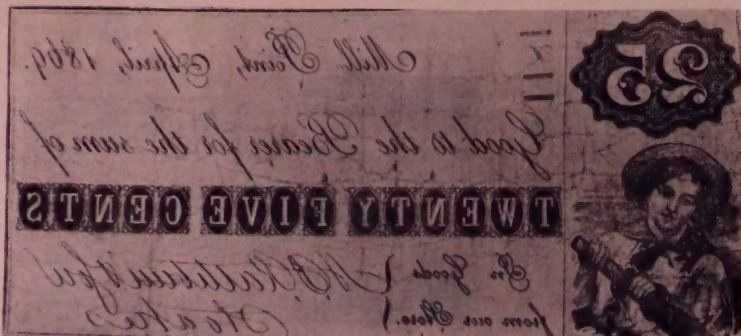 25
Mill Point, April, 1869.
Good to the Bearer for the sum of
TWENTY FIVE CENTS
In Goods
from our Store.